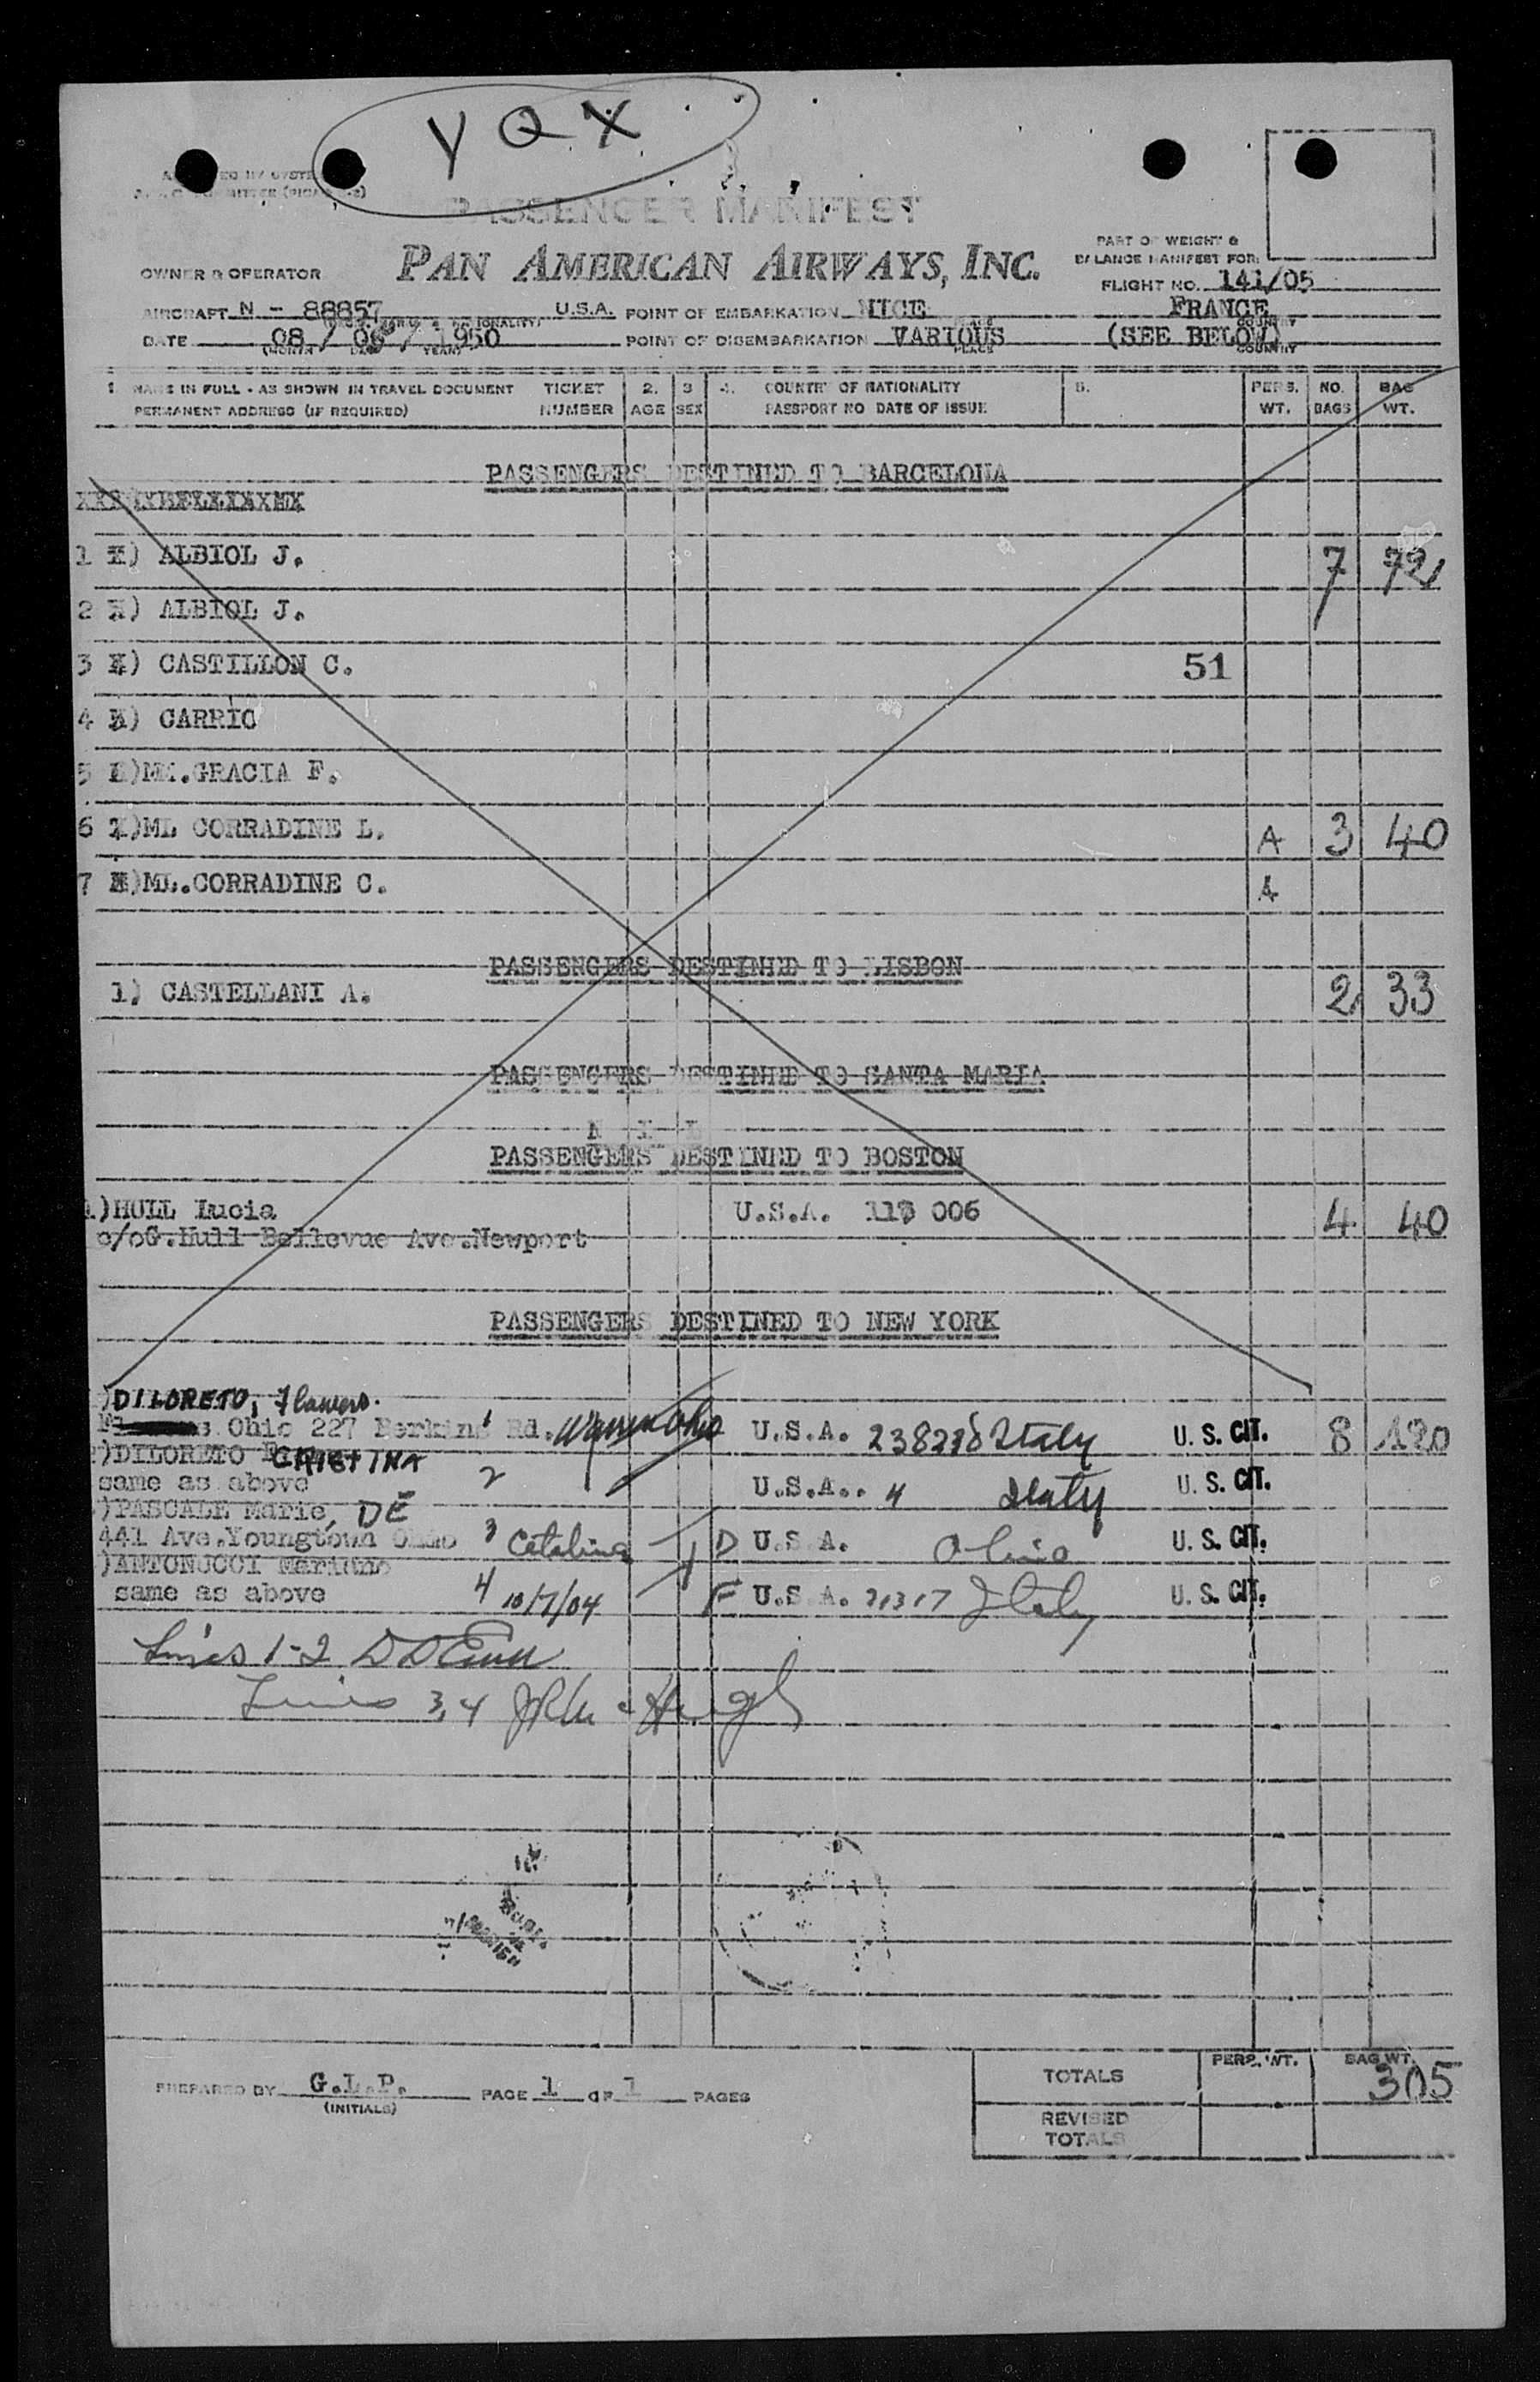 YQX
PASSENGER MANIFEST
PART OF WEIGHT &
BALANCE MANIFEST FOR:
OWNER & OPERATOR PAN AMERICAN AIRWAYS, INC.
FLIGHT NO. 141/05
AIRCRAFT N - 88857 U.S.A. POINT OF EMBARKATION NICE FRANCE
PLACE COUNTRY
DATE 08 / 1950 POINT OF DISEMBARKATION VARIOUS (SEE BELOW)
(MONTH DAY YEAR) PLACE COUNTRY
1. NAME IN FULL - AS SHOWN IN TRAVEL DOCUMENT TICKET 2. 3 4. COUNTRY OF NATIONALITY 5. PERS. NO. BAG
PERMANENT ADDRESS (IF REQUIRED) NUMBER AGE SEX PASSPORT NO DATE OF ISSUE WT. BAGS WT.
PASSENGERS DESTINED TO BARCELONA
1 ) ALBIOL J. 7 72
2 ) ALBIOL J.
3 ) CASTILLON C. 51
4 ) CARRIC
5 ) .GRACIA F.
6 )ML CORRADINE L. A 3 40
7 )ML.CORRADINE C.
PASSENGERS DESTINED TO LISBON
1) CASTELLANI A. 2 33
PASSENGERS DESTINED TO SANTA MARIA
N I L
PASSENGERS DESTINED TO BOSTON
1)HULL Lucia U.S.A. 006 4 40
c/oG.Hull Bellevue Ave.Newport
PASSENGERS DESTINED TO NEW YORK
)DILORETO, Flowers.
Ohio 227 Perkins Rd. Warren Ohio U.S.A. Italy U.S. CIT. 8 120
)DILORETO CRISTINA
same as above 2 U.S.A.. 4 Italy U.S. CIT.
)PASCALE Marie, DE
441 Ave.Youngtown Ohio 3 Catalina D U.S.A. Ohio U.S. CIT.
)ANTONUCCI Marianno
same as above 4 10/7/04 F U.S.A. Italy U.S. CIT.
Lines 1-2
Lines 3,4
TOTALS PERS. WT. BAG WT.
305
PREPARED BY G.L.P. PAGE 1 OF 1 PAGES
(INITIALS)
REVISED
TOTALS